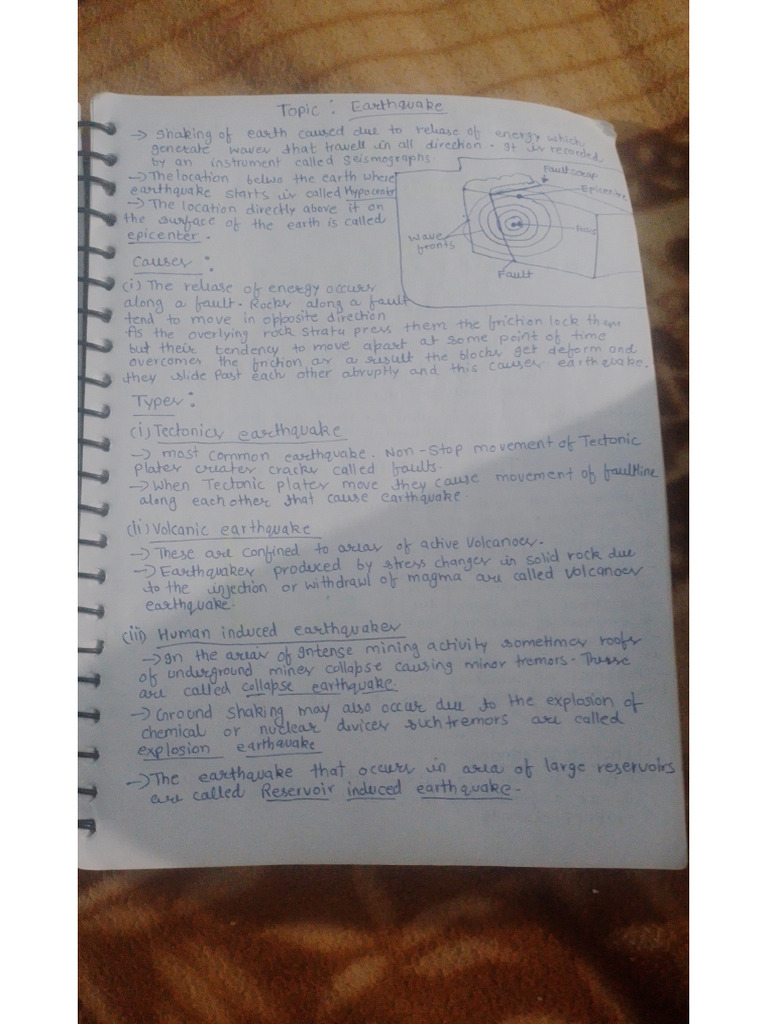 Topic : Earthquake
-> Shaking of earth caused due to release of energy which
generate waves that travell in all direction. It is recorded
by an instrument called Seismographs.
-> The location belwo the earth where
earthquake starts is called Hypocentr
-> The location directly above it on
the surface of the earth is called
epicenter.
Fault scrap
Epicentre
Focus
Wave
fronts
Fault
Causes :
(i) The release of energy occurs
along a fault. Rocks along a fault
tend to move in opposite direction
As the overlying rock strata press them the friction lock them
but their tendency to move apart at some point of time
overcomes the friction as a result the blocks get deform and
they slide Past each other abruptly and this causes earthquake.
Types :
(i) Tectonics earthquake
-> most common earthquake. Non-Stop movement of Tectonic
plates creates cracks called faults.
-> When Tectonic plates move they cause movement of faultline
along each other that cause earthquake.
(ii) Volcanic earthquake
-> These are confined to areas of active Volcanoes.
-> Earthquakes produced by stress changes in solid rock due
to the injection or withdrawl of magma are called volcanoes
earthquake.
(iii) Human induced earthquakes
-> In the areas of intense mining activity sometimes roofs
of underground mines collapse causing minor tremors. These
are called collapse earthquake.
-> Ground shaking may also occur due to the explosion of
chemical or nuclear divices such tremors are called
explosion earthquake
-> The earthquake that occurs in area of large reservoirs
are called Reservoir induced earthquake.